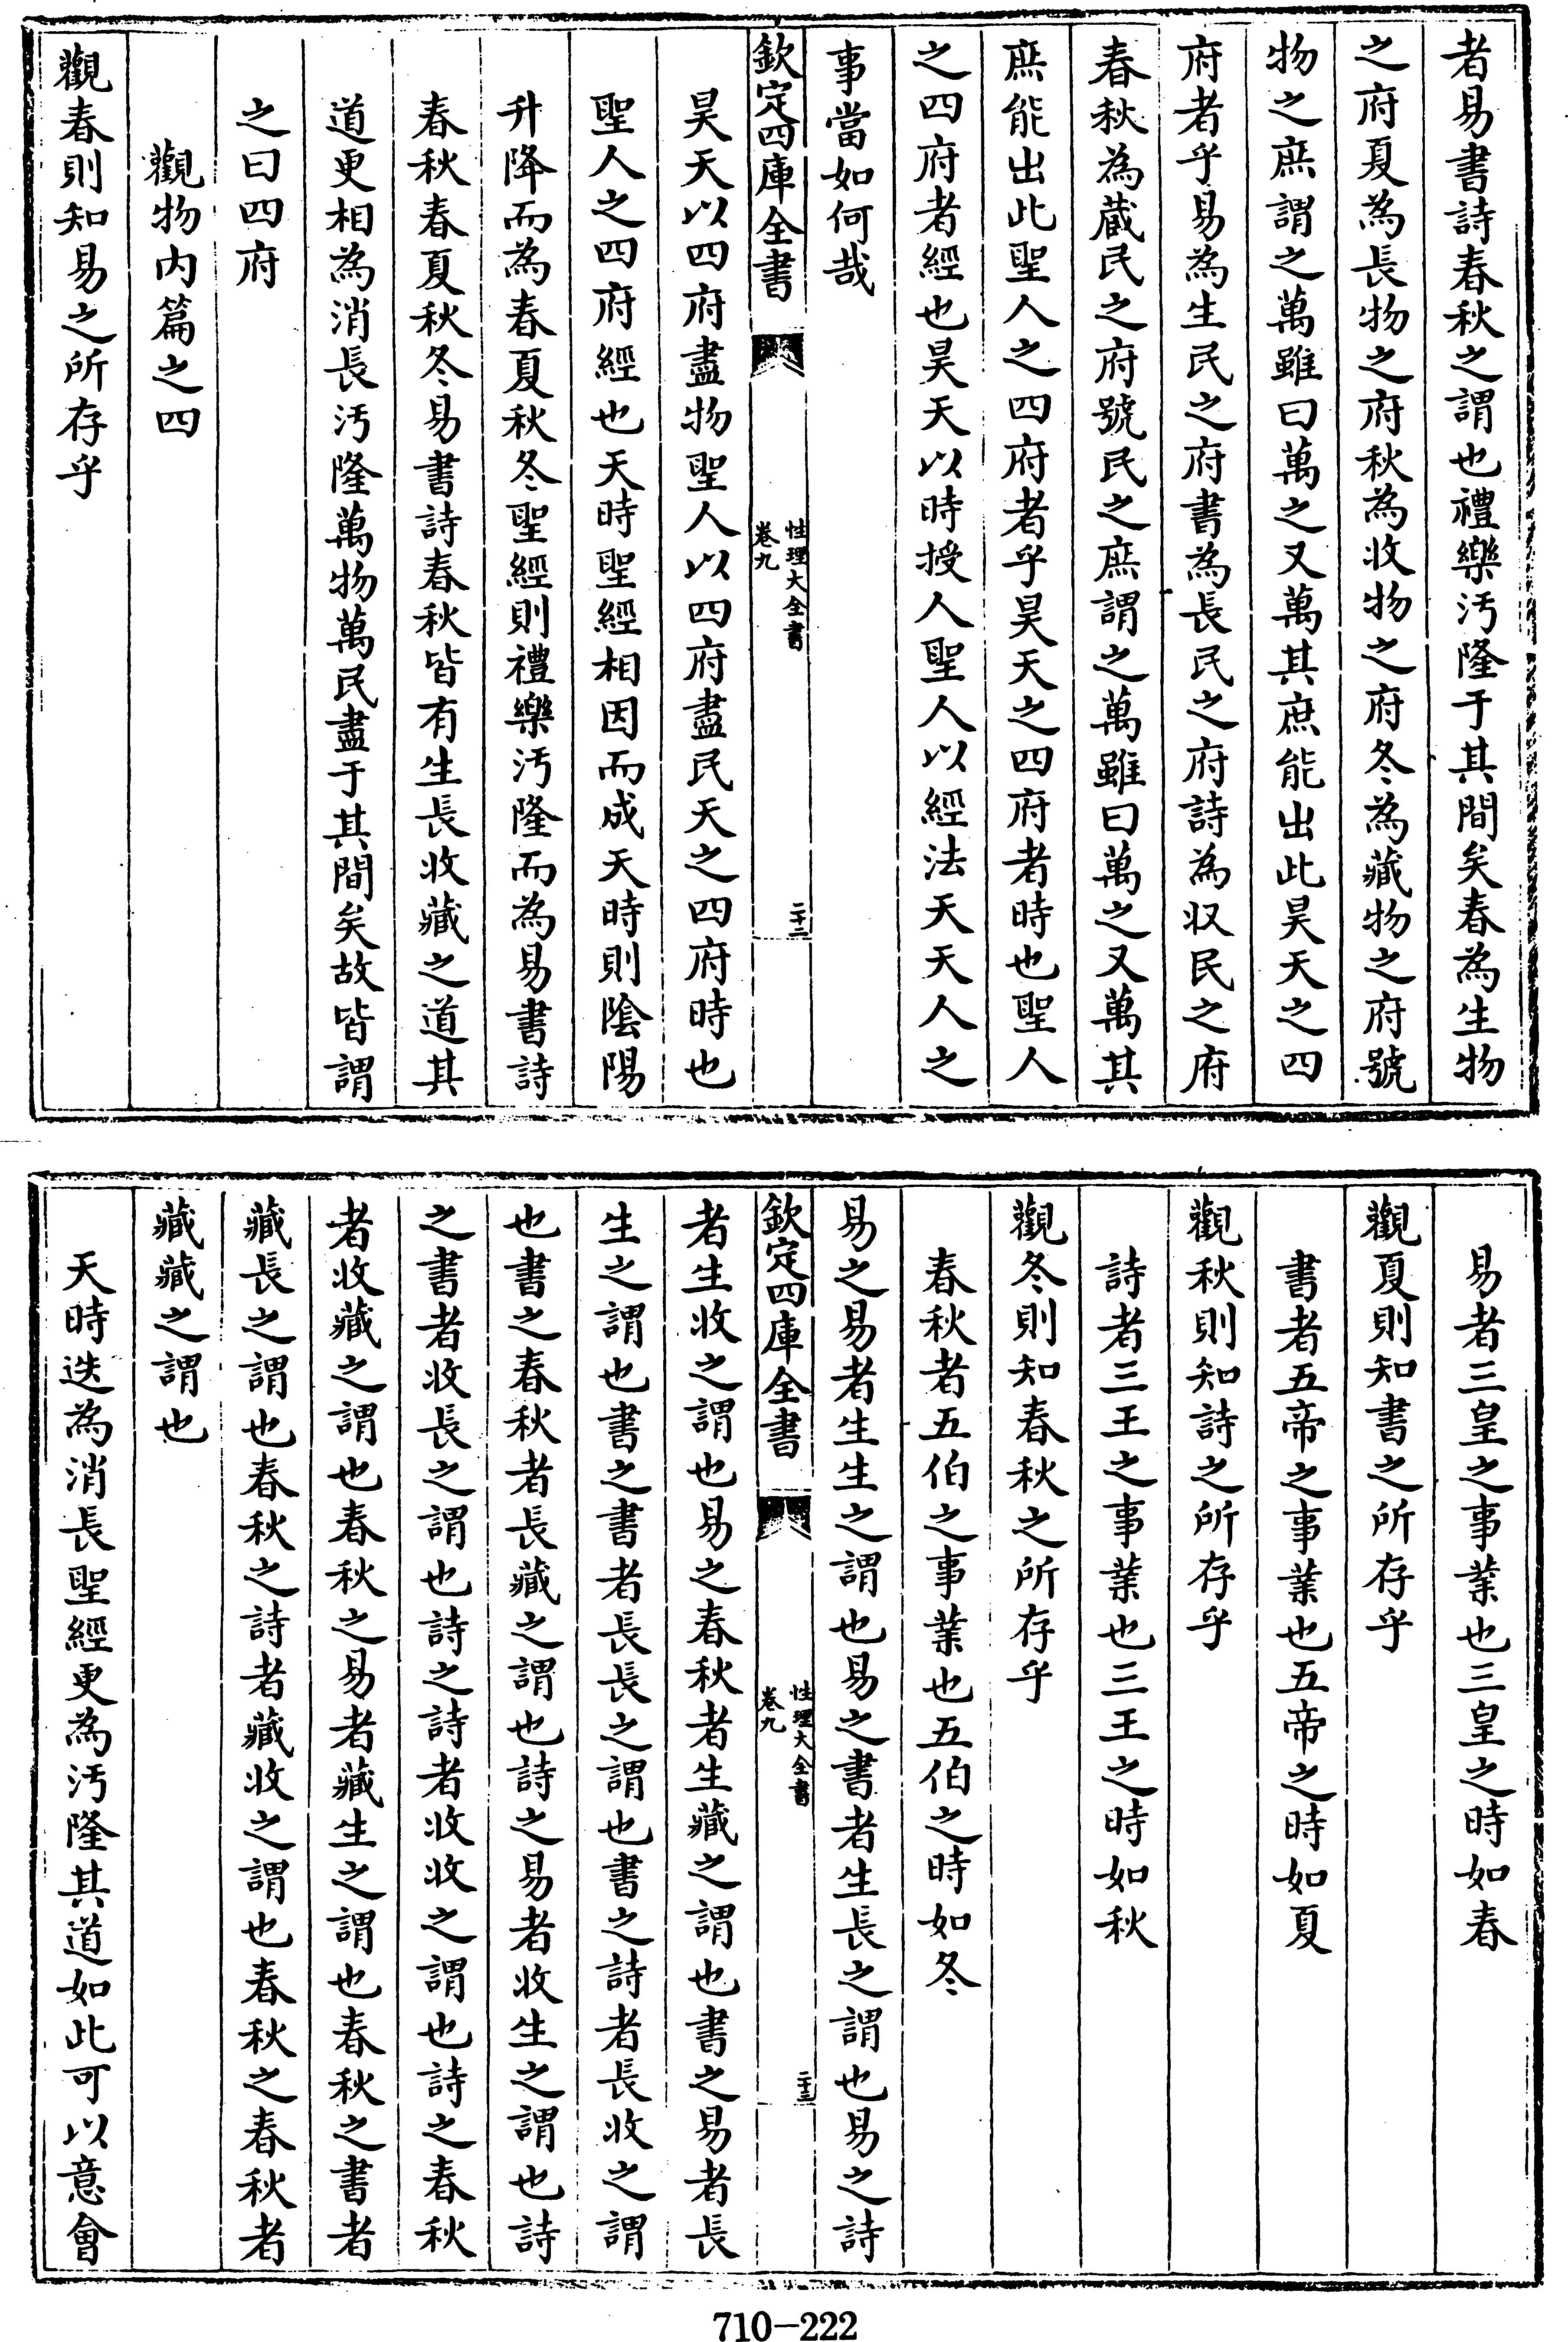 者易書詩春秋之謂也禮樂汚隆于其間矣春為生物
之府夏為長物之府秋為收物之府冬為藏物之府號
物之庶謂之萬雖曰萬之又萬其庶能出此昊天之四
府者乎易為生民之府書為長民之府詩為収民之府
春秋為蔵民之府號民之庶謂之萬雖曰萬之又萬其
庶能出此聖人之四府者乎昊天之四府者時也聖人
之四府者經也昊天以時授人聖人以經法天天人之
事當如何哉
欽定四庫全書
性理大全書
卷九
二十二
昊天以四府盡物聖人以四府盡民天之四府時也
聖人之四府經也天時聖經相因而成天時則陰陽
升降而為春夏秋冬聖經則禮樂汚隆而為易書詩
春秋春夏秋冬易書詩春秋皆有生長收藏之道其
道更相為消長汚隆萬物萬民盡于其間矣故皆謂
之曰四府
觀物内篇之四
觀春則知易之所存乎
易者三皇之事業也三皇之時如春
觀夏則知書之所存乎
書者五帝之事業也五帝之時如夏
觀秋則知詩之所存乎
詩者三王之事業也三王之時如秋
觀冬則知春秋之所存乎
春秋者五伯之事業也五伯之時如冬
易之易者生生之謂也易之書者生長之謂也易之詩
欽定四庫全書
性理大全書
卷九
二十三
者生收之謂也易之春秋者生藏之謂也書之易者長
生之謂也書之書者長長之謂也書之詩者長收之謂
也書之春秋者長藏之謂也詩之易者收生之謂也詩
之書者收長之謂也詩之詩者收收之謂也詩之春秋
者收藏之謂也春秋之易者藏生之謂也春秋之書者
藏長之謂也春秋之詩者藏收之謂也春秋之春秋者
藏藏之謂也
天時迭為消長聖經更為汚隆其道如此可以意會
710-222